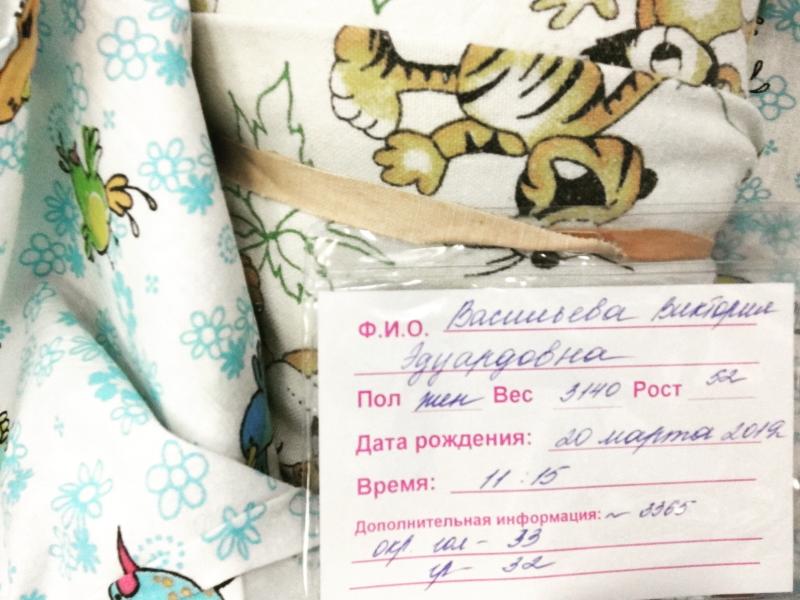 Ф.И.О. Васильева Виктория
Эдуардовна
Пол жен Вес 3140 Рост 52
Дата рождения: 20 марта 2019г
Время: 11:15
Дополнительная информация: ~ 3365
окр. гол - 33
гр - 32